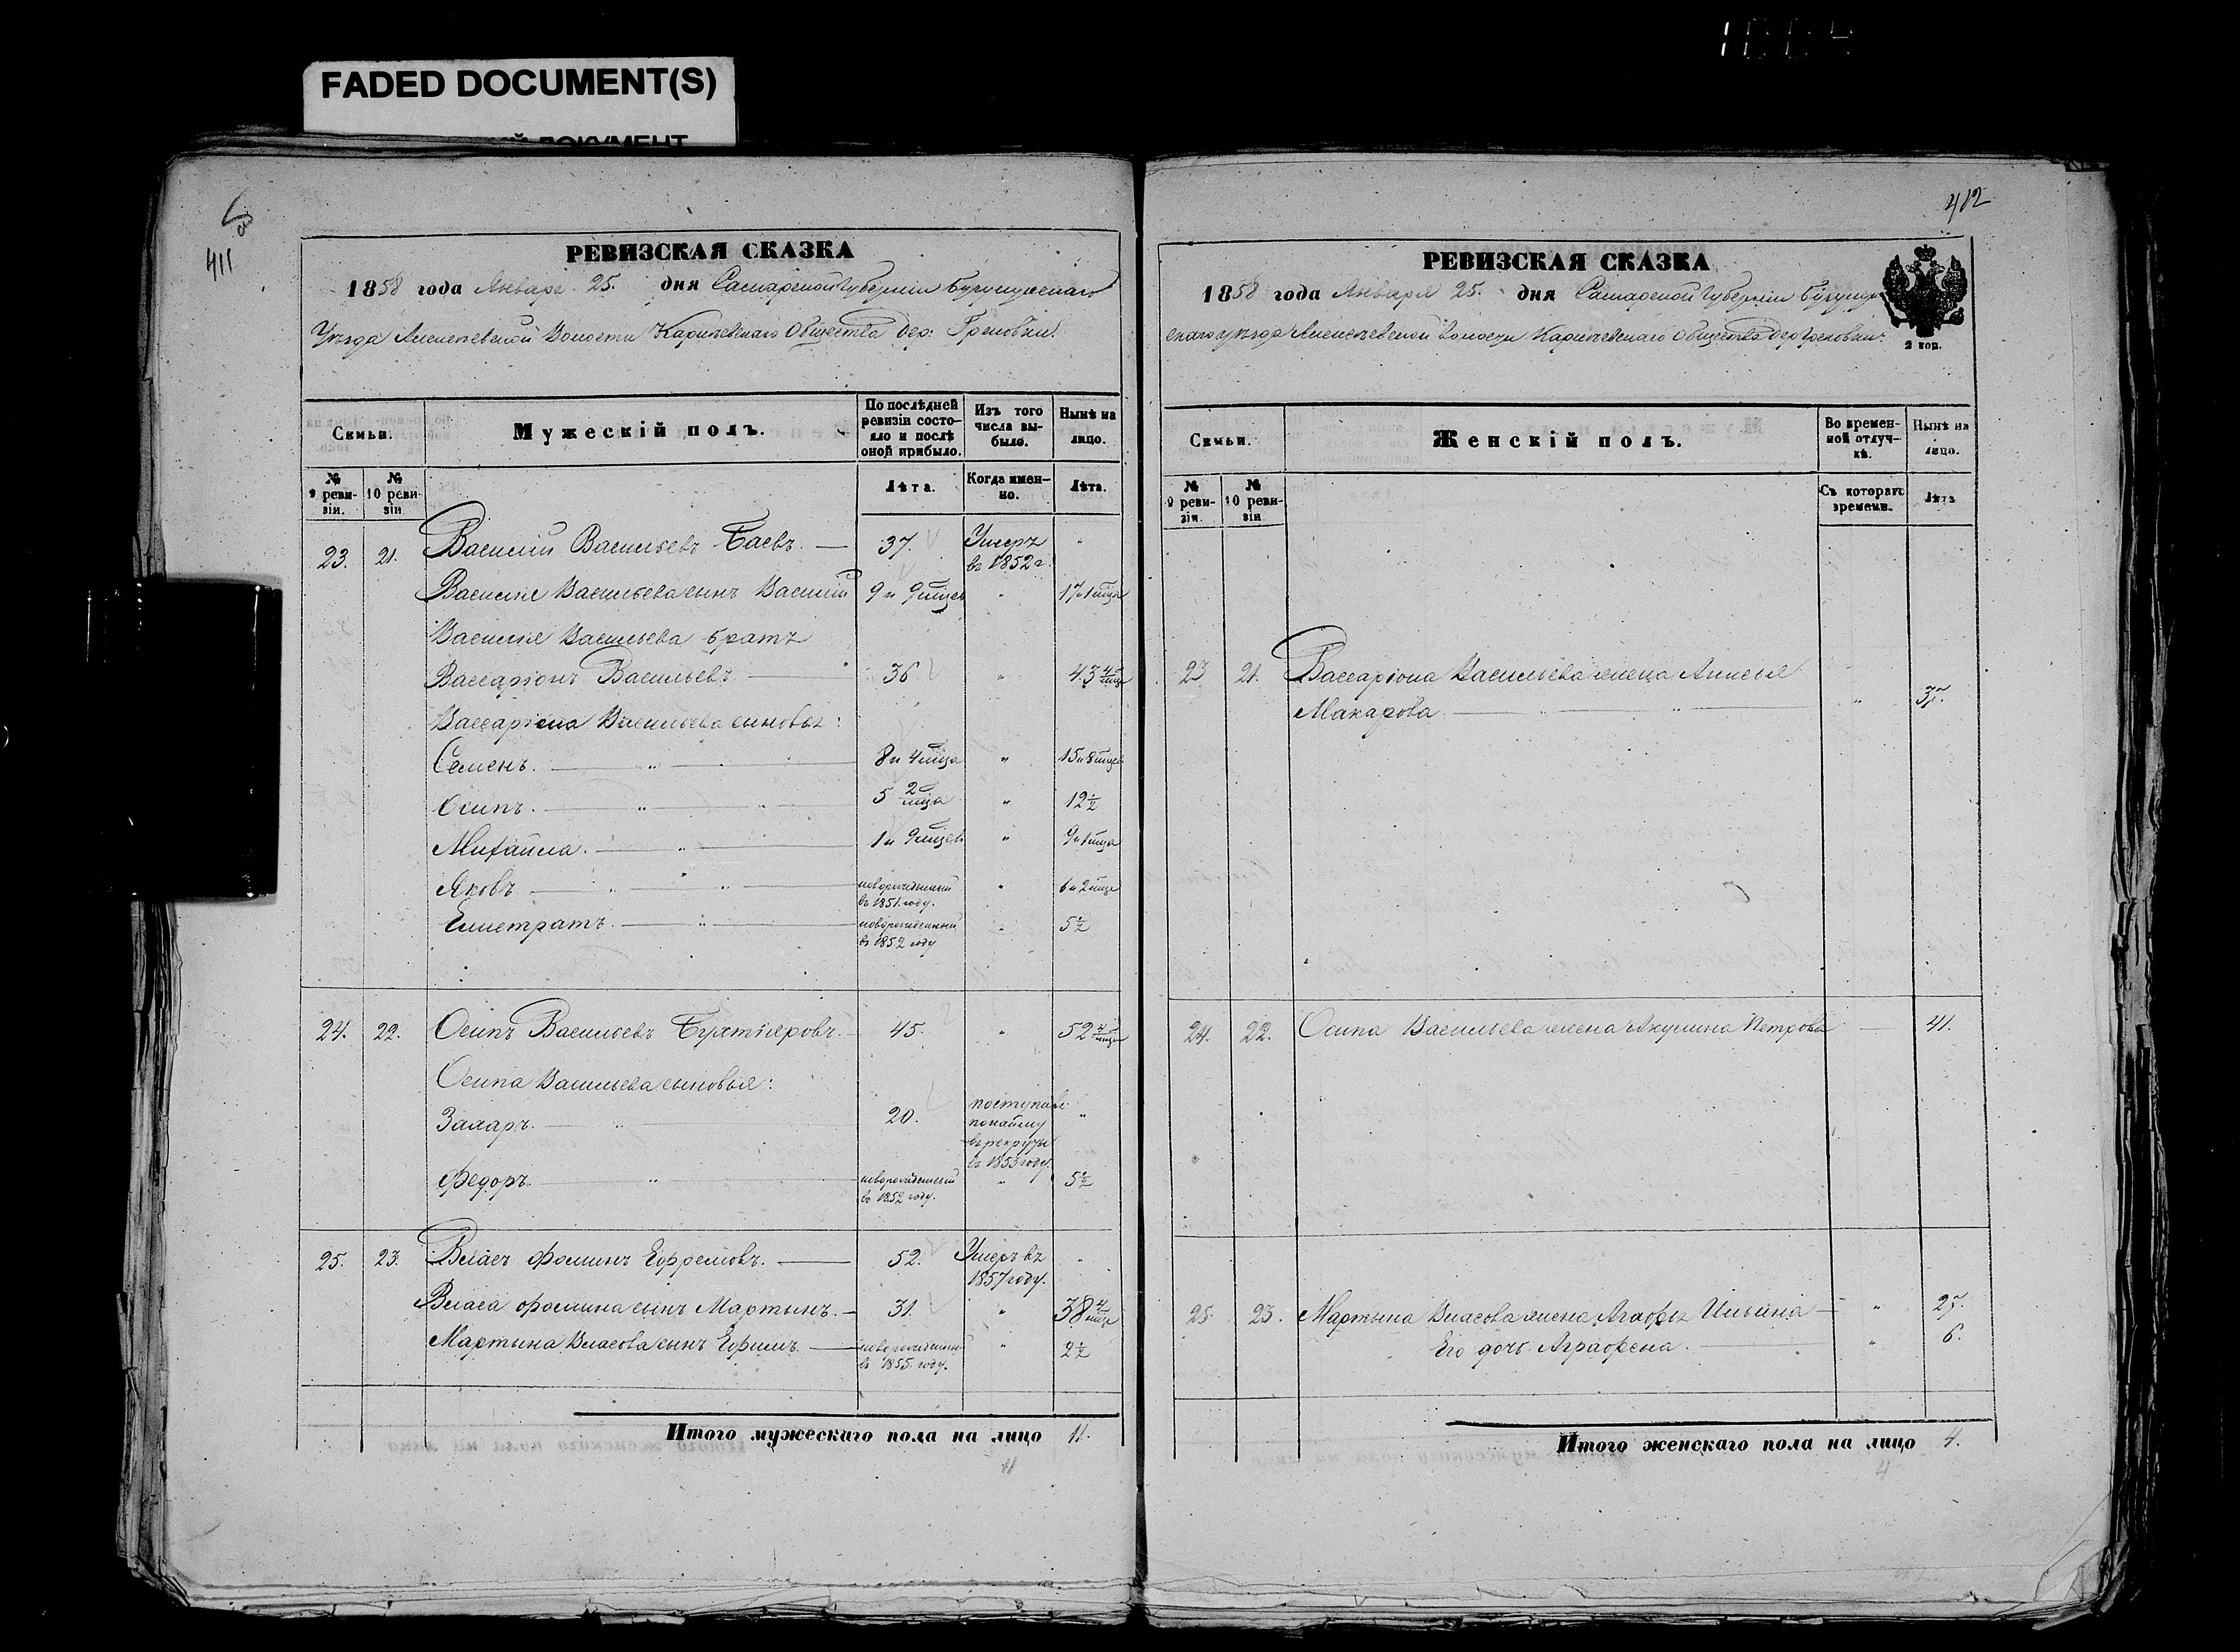 FADED DOCUMENT(S)
411
РЕВИЗСКАЯ СКАЗКА
1858 года Января 25. дня Самарской Губерніи Бугурусланскаго
Уѣзда Волости Общества дер:
Семьи.
Мужескій полъ.
По послѣдней ревизіи состояло и послѣ оной прибыло.
Изъ того числа выбыло.
Нынѣ на лицо.
№ 9 ревизіи.
№ 10 ревизіи
Лѣта.
Когда именно.
Лѣта.
23. 21. Василій Васильевъ Баевъ. 37. Умеръ в 1852 г. "
Василія Васильева сынъ Василій 9 и 9 мцев " 17 и 1 мца
Василія Васильева братъ
Вассаріонъ Васильевъ 36 " 43 4 мца
Вассаріона Васильева сыновья:
Семенъ. " 8 и 4 мца " 15 и 8 мцев
Осипъ. " " 5 2 мца " 12 ½
Михайла. " 1 и 9 мцев " 9 и 1 мца
Яковъ " " новорожденный въ 1851. году. " 6 и 2 мца
Евстратъ. " новорожденный въ 1852 году " 5 ½
24. 22. Осипъ Васильевъ Бухтіяровъ. 45. " 52 4 мца
Осипа Васильева сыновья:
Захаръ. " 20. поступилъ по найму въ рекруты въ 1853 году. "
Федоръ. " новорожденный въ 1852 году. " 5 ½
25. 23. Власъ Фоминъ Ефремовъ. 52. Умеръ въ 1857 году. "
Власа Фомина сынъ Мартынъ. 31. " 38 4 мца
Мартына Власова сынъ Ефимъ. новорожденный въ 1855. году. " 2 ½
Итого мужескаго пола на лицо 11.
11
412
РЕВИЗСКАЯ СКАЗКА
1858 года Января 25. дня Самарской Губерніи Бугурусланскаго
уѣзда волости Общества дер
2 коп.
Семьи.
Женскій полъ.
Во временной отлучкѣ.
Нынѣ на лицо.
№ 9 ревизіи.
№ 10 ревизіи
Съ котораго времени.
Лѣта
23 21. Вассаріона Васильева жена Анисья
Макарова " " " 37.
24. 22. Осипа Васильева жена Акулина Петрова 41.
25. 23. Мартына Власова жена Агафья Ильина " 27.
Его дочь Аграфена. " 6.
Итого женскаго пола на лицо 4.
4